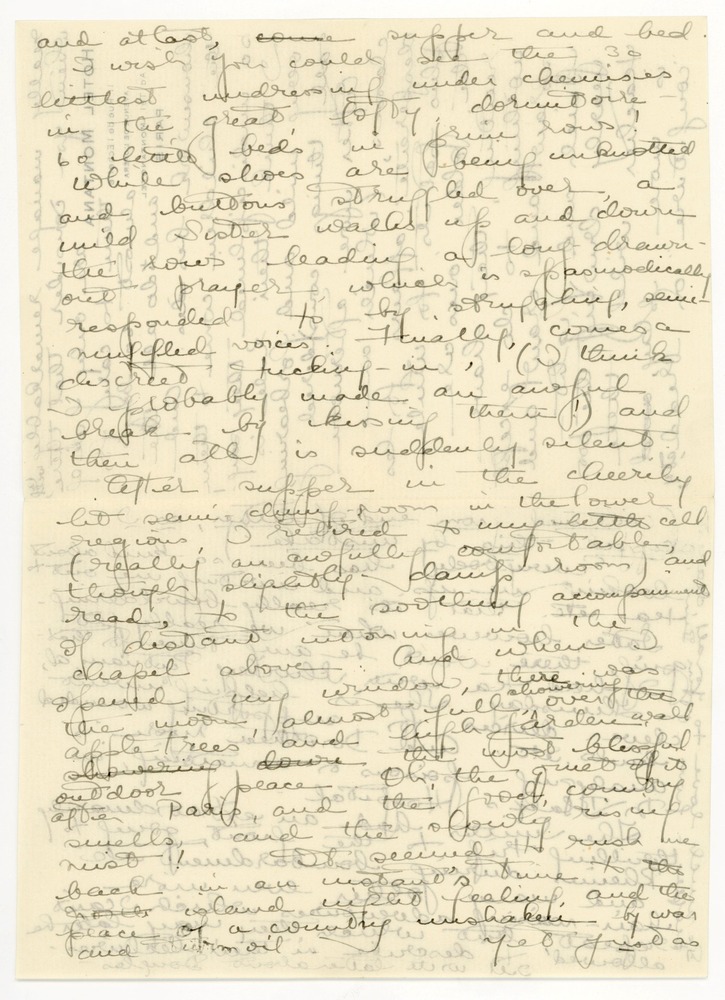 and at last, come supper and bed.
I wish you could see the 30
littlest undressing under chemises
in the great lofty dormitoire —
60 little beds in prim rows!
While shoes are being unknotted
and buttons struggled over, a
mild Sister walks up and down
the rows leading a long-drawn-
out prayer, which is spasmodically
responded to by struggling, semi-
muffled voices. Finally, comes a
discreet tucking-in, (I think
I probably made an awful
break by kissing them!) and
then all is suddenly silent.
After supper in the cheerily
lit semi dining-room in the lower
regions, I retired to my little cell
(really an awfully comfortable,
though slightly damp room) and
read, to the soothing accompaniment
of distant intoning in the
chapel above. And when I
opened my window, there was
the moon, almost full, showering over the
apple trees, and high garden wall
showering down the most blissful
outdoor peace. Oh, the quiet of it
after Paris, and the good, country
smells, and the slowly rising
mist! It seemed to rush me
back in an instant's time to the
north island night feeling and the
peace of a country unshaken by war
and turmoil. Yet just as